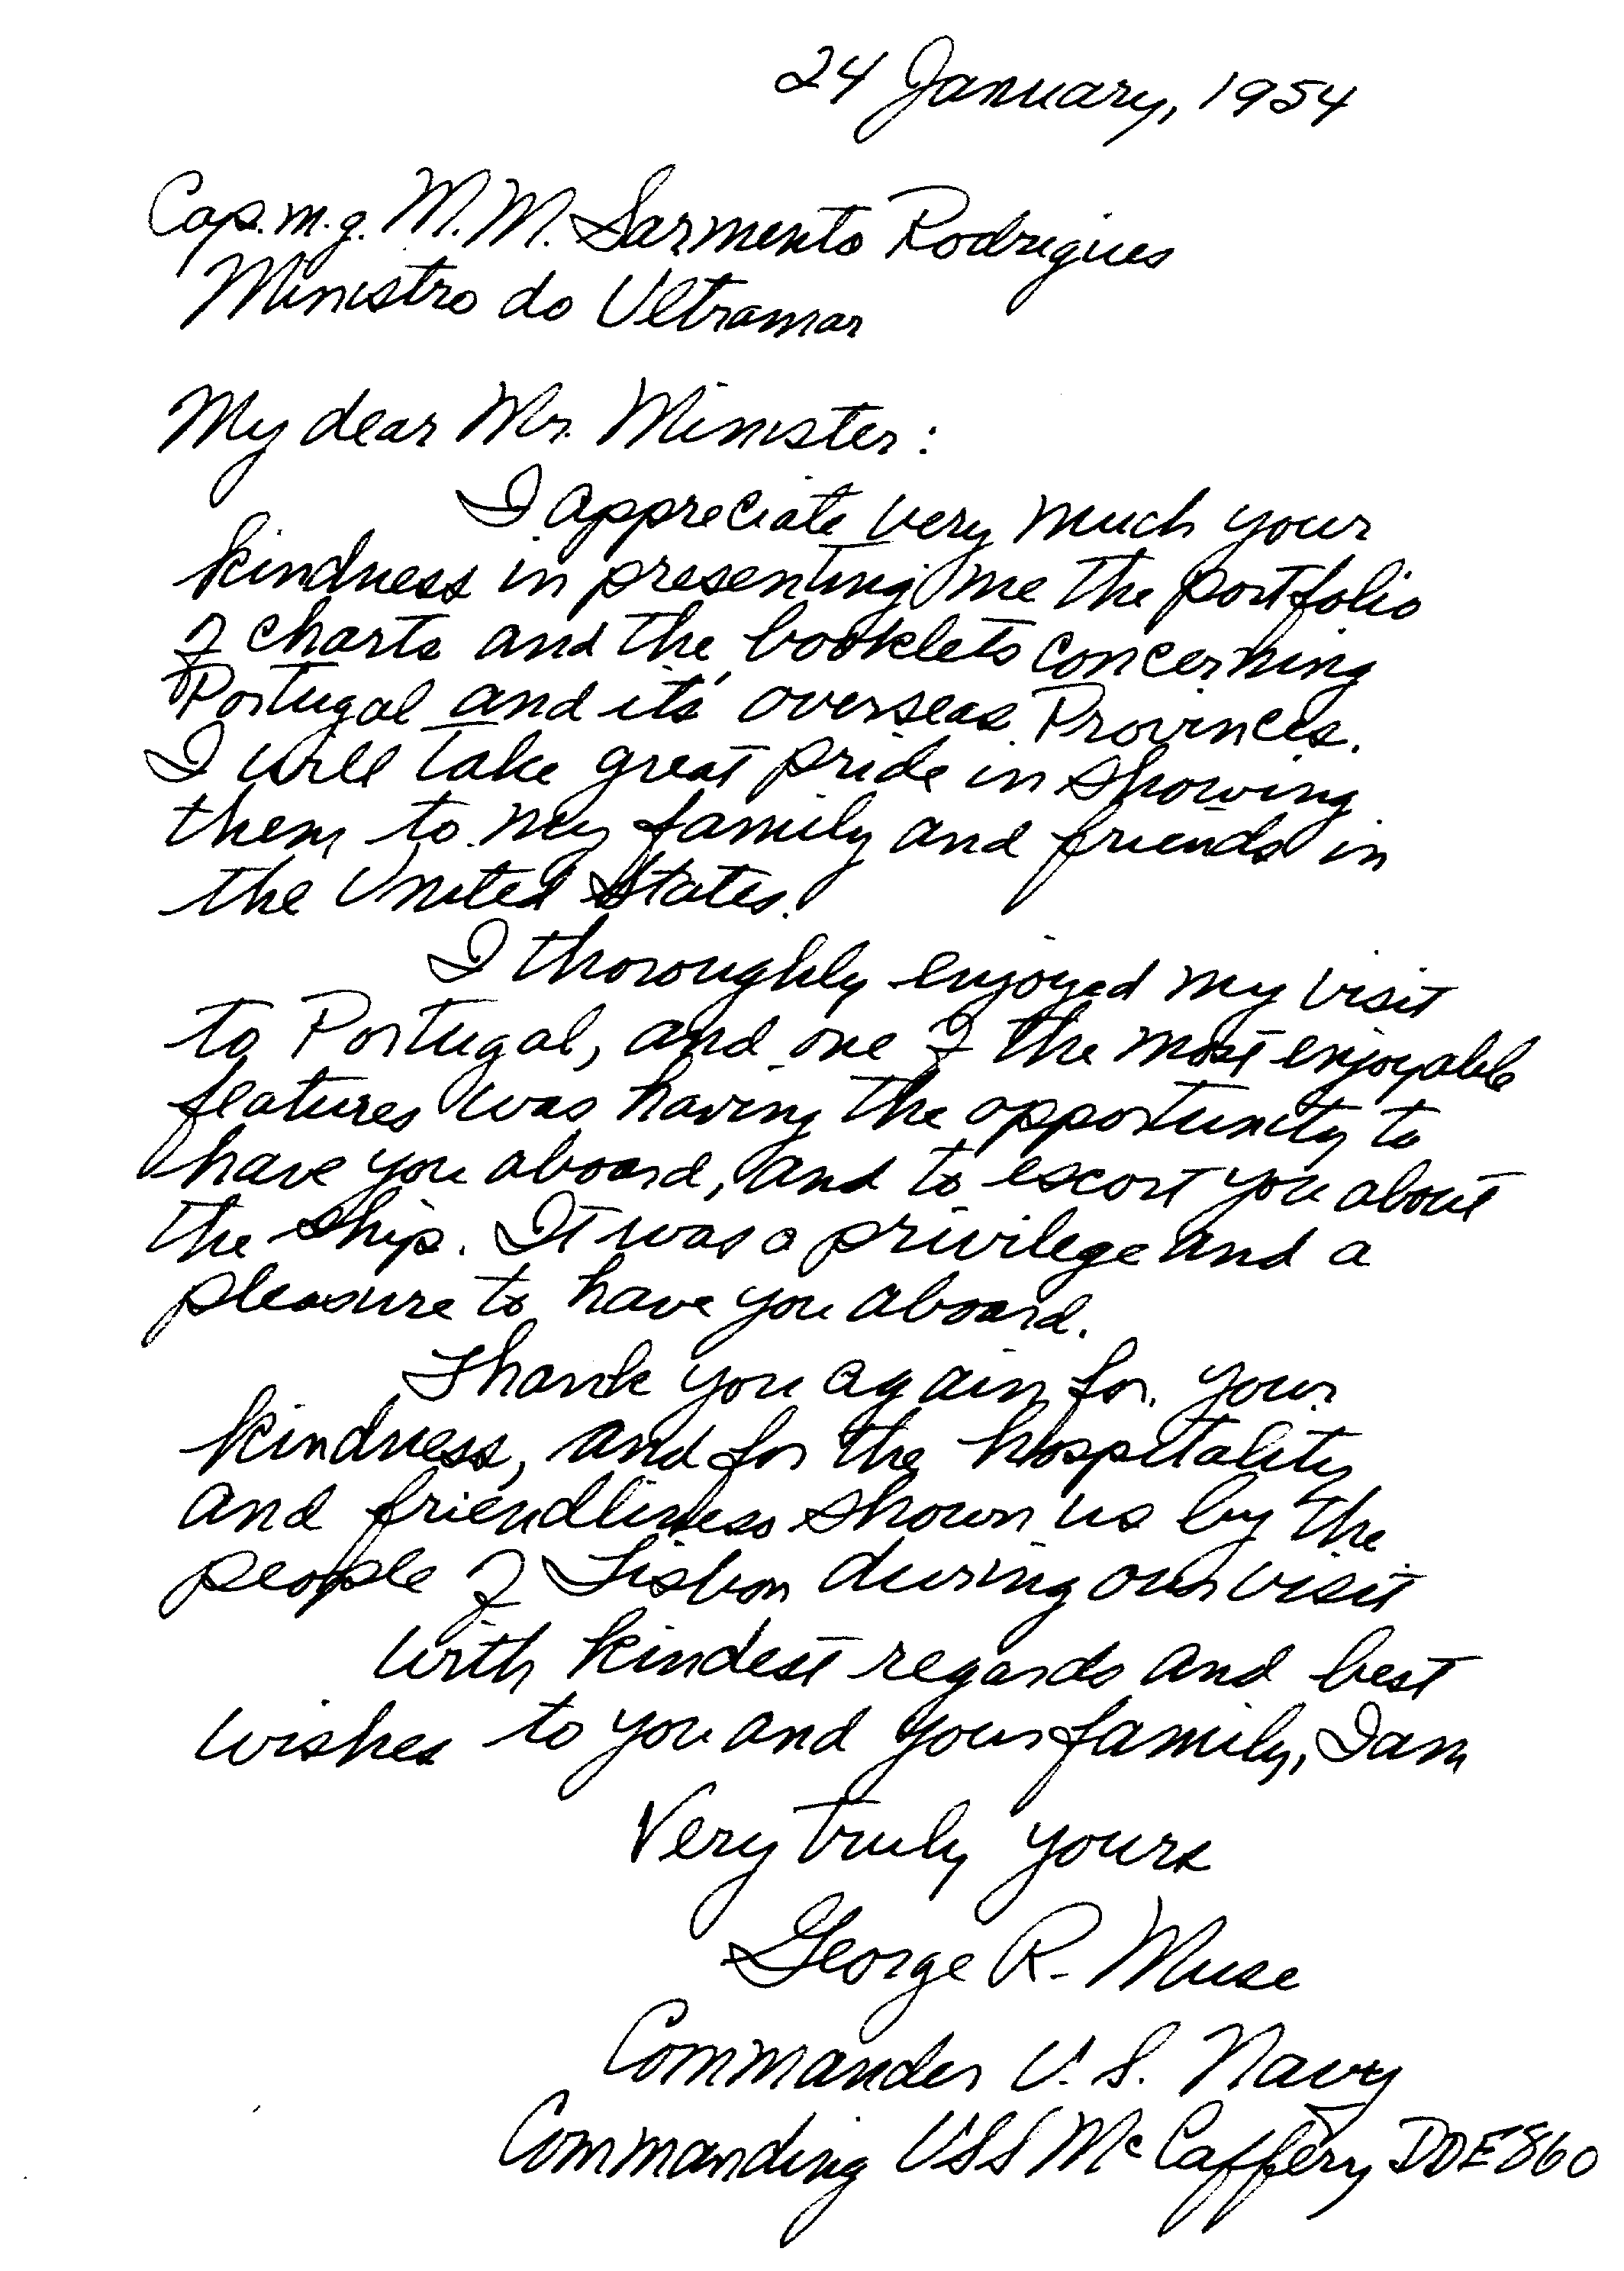 24 January, 1954
Cap. m. g. M. M. Sarmento Rodrigues
Ministro do Ultramar
My dear Mr. Minister:
I appreciate very much your
kindness in presenting me the portfolio
of charts and the booklets concerning
Portugal and its' overseas Provinces.
I will take great pride in showing
them to my family and friends in
the United States.
I thoroughly enjoyed my visit
to Portugal, and one of the most enjoyable
features was having the opportunity to
have you aboard, and to escort you about
the ship. It was a privilege and a
pleasure to have you aboard.
Thank you again for your
kindness, and for the hospitality
and friendliness shown us by the
people of Lisbon during our visit
With kindest regards and best
wishes to you and your family, I am
Very truly yours
George R. Muse
Commander U. S. Navy
Commanding USS McCaffery DDE860